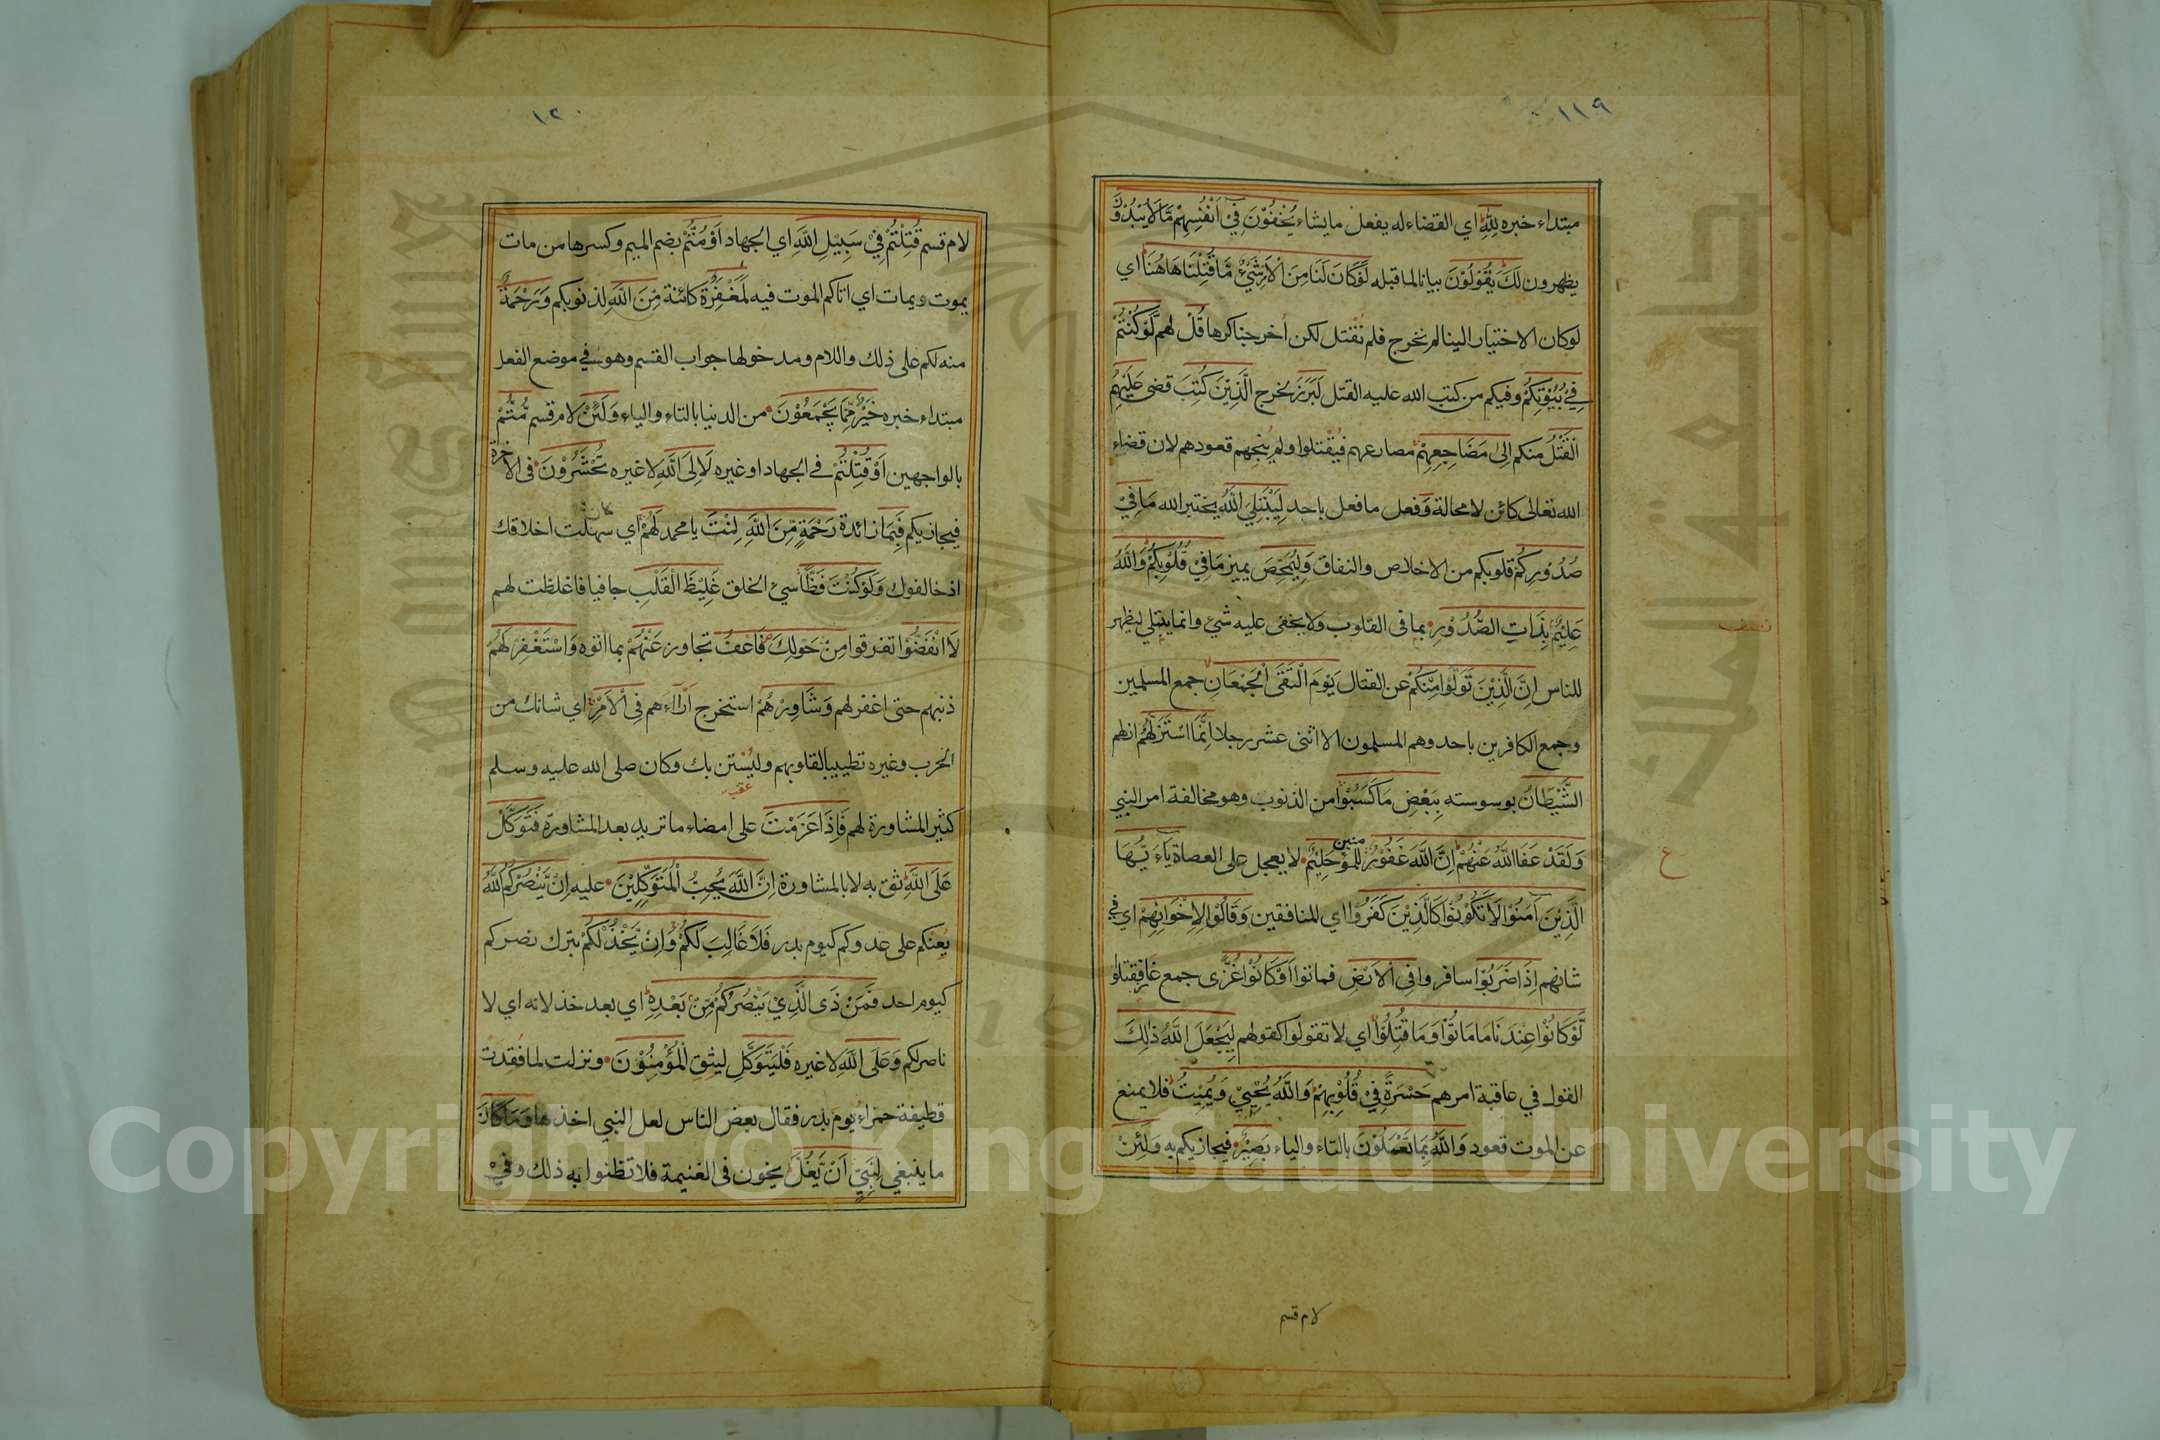 ١١٩
مبتداء خبره لِلّٰهِ اي القضاء له يفعل ما يشاء يُخْفُوْنَ فِيْ اَنْفُسِهِمْ مَّا لَا يُبْدُوْنَ
يظهرون لَكَ يَقُوْلُوْنَ بيان لما قبله لَوْ كَانَ لَنَا مِنَ الْاَمْرِ شَيْءٌ مَّا قُتِلْنَا هَاهُنَا اي
لو كان الاختيار الينا لم نخرج فلم نقتل لكن أخرجنا كرها قُلْ لهم لَّوْ كُنْتُمْ
فِيْ بُيُوْتِكُمْ وفيكم من كتب الله عليه القتل لَبَرَزَ يخرج الَّذِيْنَ كُتِبَ قضى عَلَيْهِمُ
الْقَتْلُ منكم اِلٰى مَضَاجِعِهِمْ مصارعهم فيُقْتلوا ولم ينجهم قعودهم لان قضاء
الله تعالى كائن لا محالة وَفعل ما فعل باحد لِيَبْتَلِيَ اللّٰهُ يختبر الله مَا فِيْ
صُدُوْرِكُمْ قلوبكم من الاخلاص والنفاق وَلِيُمَحِّصَ يميز مَا فِيْ قُلُوْبِكُمْ وَاللّٰهُ
عَلِيْمٌ بِذَاتِ الصُّدُوْرِ بما فى القلوب ولا يخفى عليه شئ وانما يبتلي ليظهر
للناس اِنَّ الَّذِيْنَ تَوَلَّوْا مِنْكُمْ عن القتال يَوْمَ الْتَقَى الْجَمْعَانِ جمع المسلمين
وجمع الكافرين باحد وهم المسلمون الا اثنى عشر رجلا اِنَّمَا اسْتَزَلَّهُمُ ازلهم
الشَّيْطَانُ بوسوسته بِبَعْضِ مَا كَسَبُوْا من الذنوب وهو مخالفة امر النبي
وَلَقَدْ عَفَا اللّٰهُ عَنْهُمْ اِنَّ اللّٰهَ غَفُوْرٌ للمؤمنين حَلِيْمٌ لا يعجل على العصاة يَاۤءَيُّهَا
ع
الَّذِيْنَ اٰمَنُوْا لَا تَكُوْنُوْا كَالَّذِيْنَ كَفَرُوْا اي للمنافقين وَقَالُوْا لِاِخْوَانِهِمْ اي في
شانهم اِذَا ضَرَبُوْا سافروا فِى الْاَرْضِ فماتوا اَوْ كَانُوْا غُزًّى جمع غاز فقتلوا
لَّوْ كَانُوْا عِنْدَنَا مَا مَاتُوْا وَمَا قُتِلُوْا اي لا تقولوا كقولهم لِيَجْعَلَ اللّٰهُ ذٰلِكَ
القول في عاقبة امرهم حَسْرَةً فِيْ قُلُوْبِهِمْ وَاللّٰهُ يُحْيِيْ وَيُمِيْتُ فلا يمنع
عن الموت قعود وَاللّٰهُ بِمَا تَعْمَلُوْنَ بالتاء والياء بَصِيْرٌ فيجازيكم به وَلَئِنْ
لام قسم
١٢٠
لام قسم قُتِلْتُمْ فِيْ سَبِيْلِ اللّٰهِ اي الجهاد اَوْ مُتُّمْ بضم الميم وكسرها من مات
يموت ويمات اي اتاكم الموت فيه لَمَغْفِرَةٌ كائنة مِّنَ اللّٰهِ لذنوبكم وَرَحْمَةٌ
منه لكم على ذلك واللام ومدخولها جواب القسم وهو في موضع الفعل
مبتداء خبره خَيْرٌ مِّمَّا يَجْمَعُوْنَ من الدنيا بالتاء والياء وَلَئِنْ لام قسم مُّتُّمْ
بالواجهين اَوْ قُتِلْتُمْ في الجهاد او غيره لَاِلَى اللّٰهِ لا غيره تُحْشَرُوْنَ فى الاخرة
فيجازيكم فَبِمَا زائدة رَحْمَةٍ مِّنَ اللّٰهِ لِنْتَ يا محمد لَهُمْ اي سهلت اخلاقك
اذ خالفوك وَلَوْ كُنْتَ فَظًّا سئ الخلق غَلِيْظَ الْقَلْبِ جافيا فاغلظت لهم
لَا انْفَضُّوْا تفرقوا مِنْ حَوْلِكَ فَاعْفُ تجاوز عَنْهُمْ بما اتوه وَاسْتَغْفِرْ لَهُمْ
ذنبهم حتى اغفر لهم وَشَاوِرْهُمْ استخرج آراءهم فِى الْاَمْرِ اي شانك من
الحرب وغيره تطييبا لقلوبهم وليُسْتن بك وكان صلى الله عليه وسلم
كثير المشاورة لهم فَاِذَا عَزَمْتَ على امضاء ما تريد بعد المشاورة فَتَوَكَّلْ
عَلَى اللّٰهِ ثق به لا بالمشاورة اِنَّ اللّٰهَ يُحِبُّ الْمُتَوَكِّلِيْنَ عليه اِنْ يَّنْصُرْكُمُ اللّٰهُ
يُعنكم على عدوكم كيوم بدر فَلَا غَالِبَ لَكُمْ وَاِنْ يَّخْذُلْكُمْ بترك نصركم
كيوم احد فَمَنْ ذَى الَّذِيْ يَنْصُرُكُمْ مِّنْ بَعْدِهِ اي بعد خذلانه اي لا
ناصر لكم وَعَلَى اللّٰهِ لا غيره فَلْيَتَوَكَّلِ ليثق الْمُؤْمِنُوْنَ ونزلت لما فقدت
قطيفة حمراء يوم بدر فقال بعض الناس لعل النبي اخذها وَمَا كَانَ
ما ينبغي لِنَبِيٍّ اَنْ يَّغُلَّ يخون فى الغنيمة فلا تظنوا به ذلك وفيْ
Copyright © King Saud University